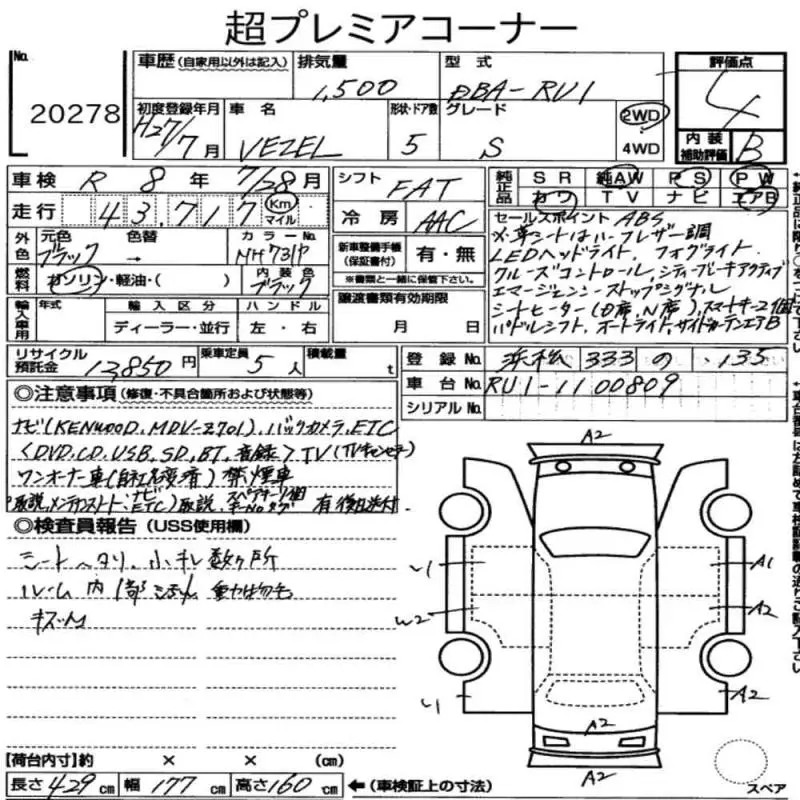 超プレミアコーナー
No. 20278
車歴 (自家用以外は記入) 排気量 1,500 型式 DBA-RU1 評価点 4
初度登録年月 H27/7月 車名 VEZEL 形状・ドア数 5 グレード S 2WD 4WD 内装補助評価 B
車検 R 8年 7/28月 シフト FAT 純正品 SR 純AW PS PW
カワ TV ナビ エアB
走行 43,717 Km マイル 冷房 AAC
セールスポイント ABS
※革シートはハーフレザー調
LEDヘッドライト、フォグライト
クルーズコントロール,シティーブレーキアクティブ
エマージェンシーストップシグナル
シートヒーター(D席,N席),スマートキー2個
パドルシフト,オートライト,サイドカーテンエアB
外色 元色 ブラック 色替 → カラーNo. NH731P 新車整備手帳(保証書付) 有・無
※書類と一緒に保管下さい
燃料 ガソリン・軽油・( ) 内装色 ブラック
輸入車用 年式 輸入区分 ディーラー・並行 ハンドル 左・右 譲渡書類有効期限 月 日
リサイクル預託金 12,850円 乗車定員 5人 積載量 t
登録No. 浜松 333 の ・135
車台No. RU1-1100809
シリアルNo.
◎注意事項 (修復・不具合箇所および状態等)
ナビ(KENWOOD.MDV-Z701),バックカメラ,ETC
(DVD,CD,USB,SD,BT,音録)TV(TVキャンセラー)
ワンオーナー車(自社名変有) 禁煙車
ナビ ETC)取説 スペアキー1個 キーNoタグ 有 後日送付.
◎検査員報告 (USS使用欄)
シートヘタリ、小キレ数ヶ所
ルーム内1部
キズ
A2
U1 A1
W2 A2
U1 A2
A2
A2
【荷台内寸】約 × × (cm)
長さ 429 cm 幅 177 cm 高さ 160 cm ←(車検証上の寸法)
スペア